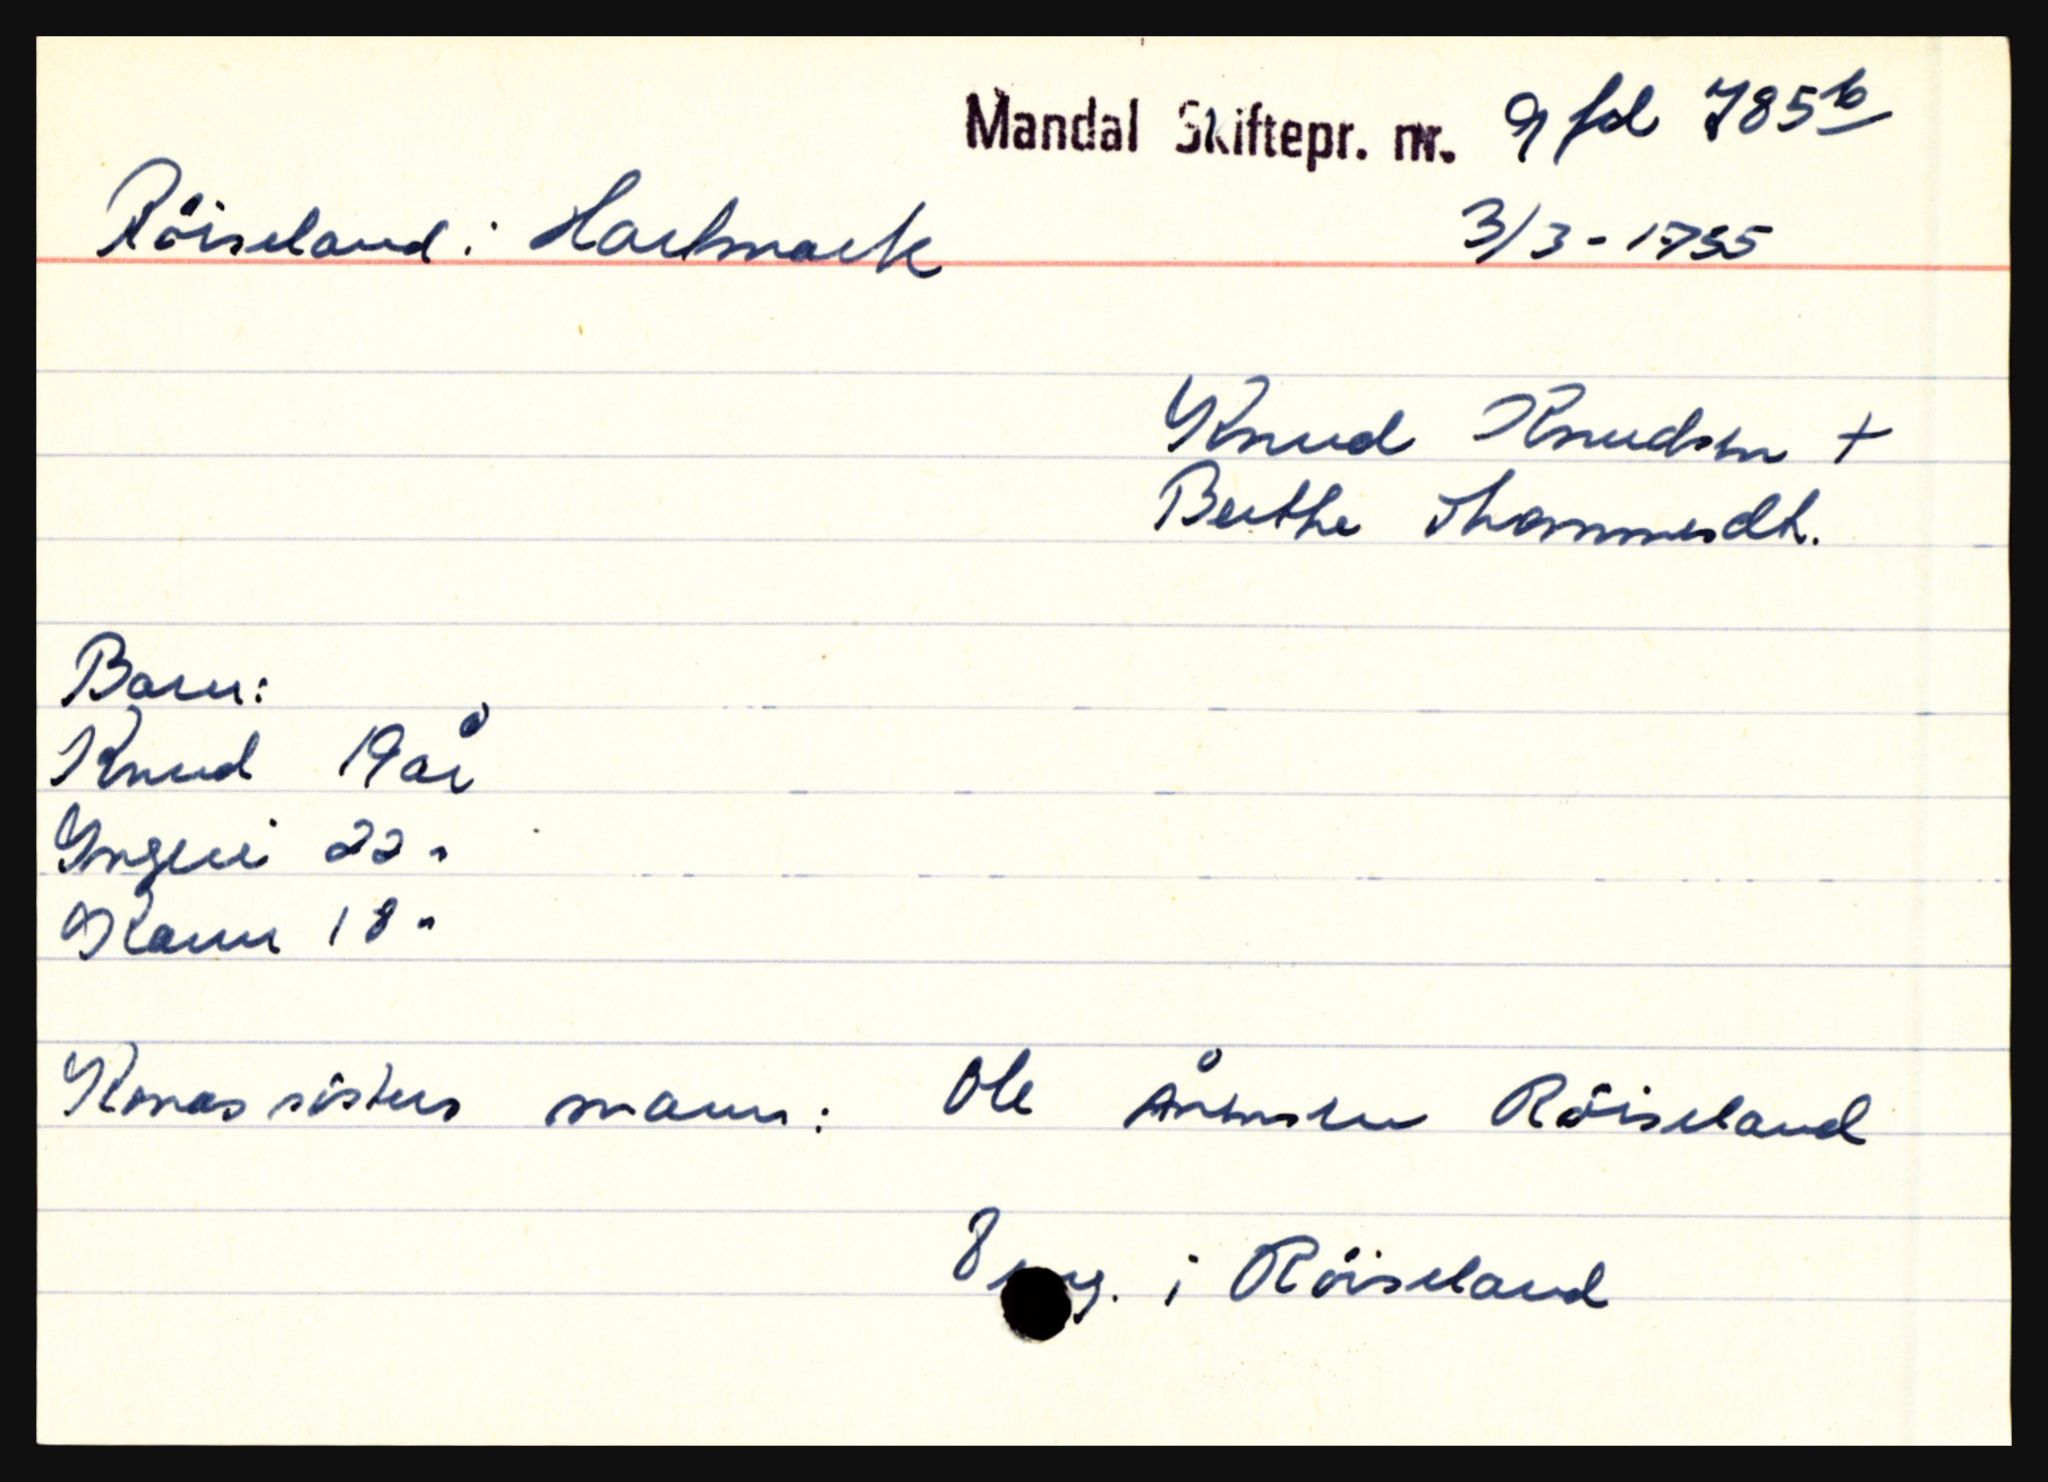 Mandal Skiftepr. nr. 9 fol 785b
Röiseland i Halsmark 3/3-1755
Knud Knudsen +
Berthe Thommesdt.
Barn:
Knud 19 år
Yngeri 22 "
Karen 18 "
Konas sösters mann: Ole Ånensen Röiseland
8 eng. i Röiseland